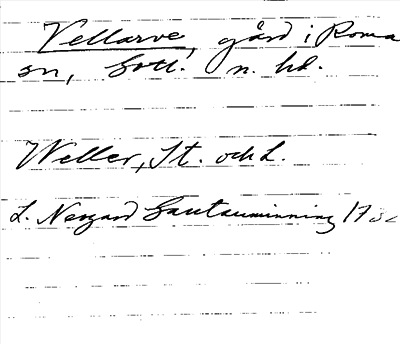 Vellarve, gård i Roma
sn, Gotl. n. hd.
Weller, St. och L.
L. Nergård Gautauminning 17